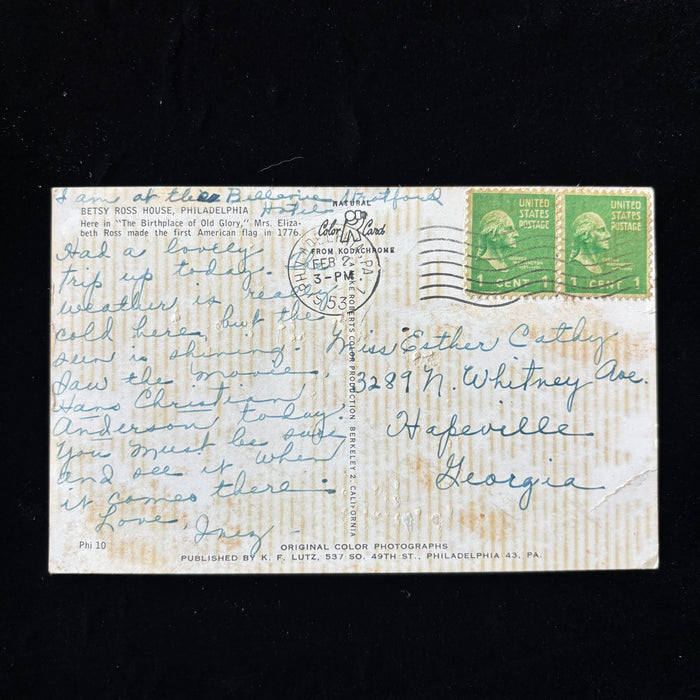 I am at the Bellevue Stratford
Hotel
BETSY ROSS HOUSE, PHILADELPHIA
Here in "The Birthplace of Old Glory," Mrs. Eliza-
beth Ross made the first American flag in 1776.
Had a lovely
trip up today.
weather is real
cold here, but the
sun is shining.
Saw the movie,
Hans Christian
Anderson today.
You must be sure
and see it when
it comes there.
Love, Inez
Phi 10
NATURAL
Color Card
FROM KODACHROME
PHILADELPHIA, PA
FEB 2
3-PM
1953
MIKE ROBERTS COLOR PRODUCTION, BERKELEY 2, CALIFORNIA
UNITED
STATES
POSTAGE
1 CENT 1
UNITED
STATES
POSTAGE
1 CENT 1
Miss Esther Cathy
3289 N. Whitney Ave.
Hapeville
Georgia
ORIGINAL COLOR PHOTOGRAPHS
PUBLISHED BY K. F. LUTZ, 537 SO. 49TH ST., PHILADELPHIA 43, PA.